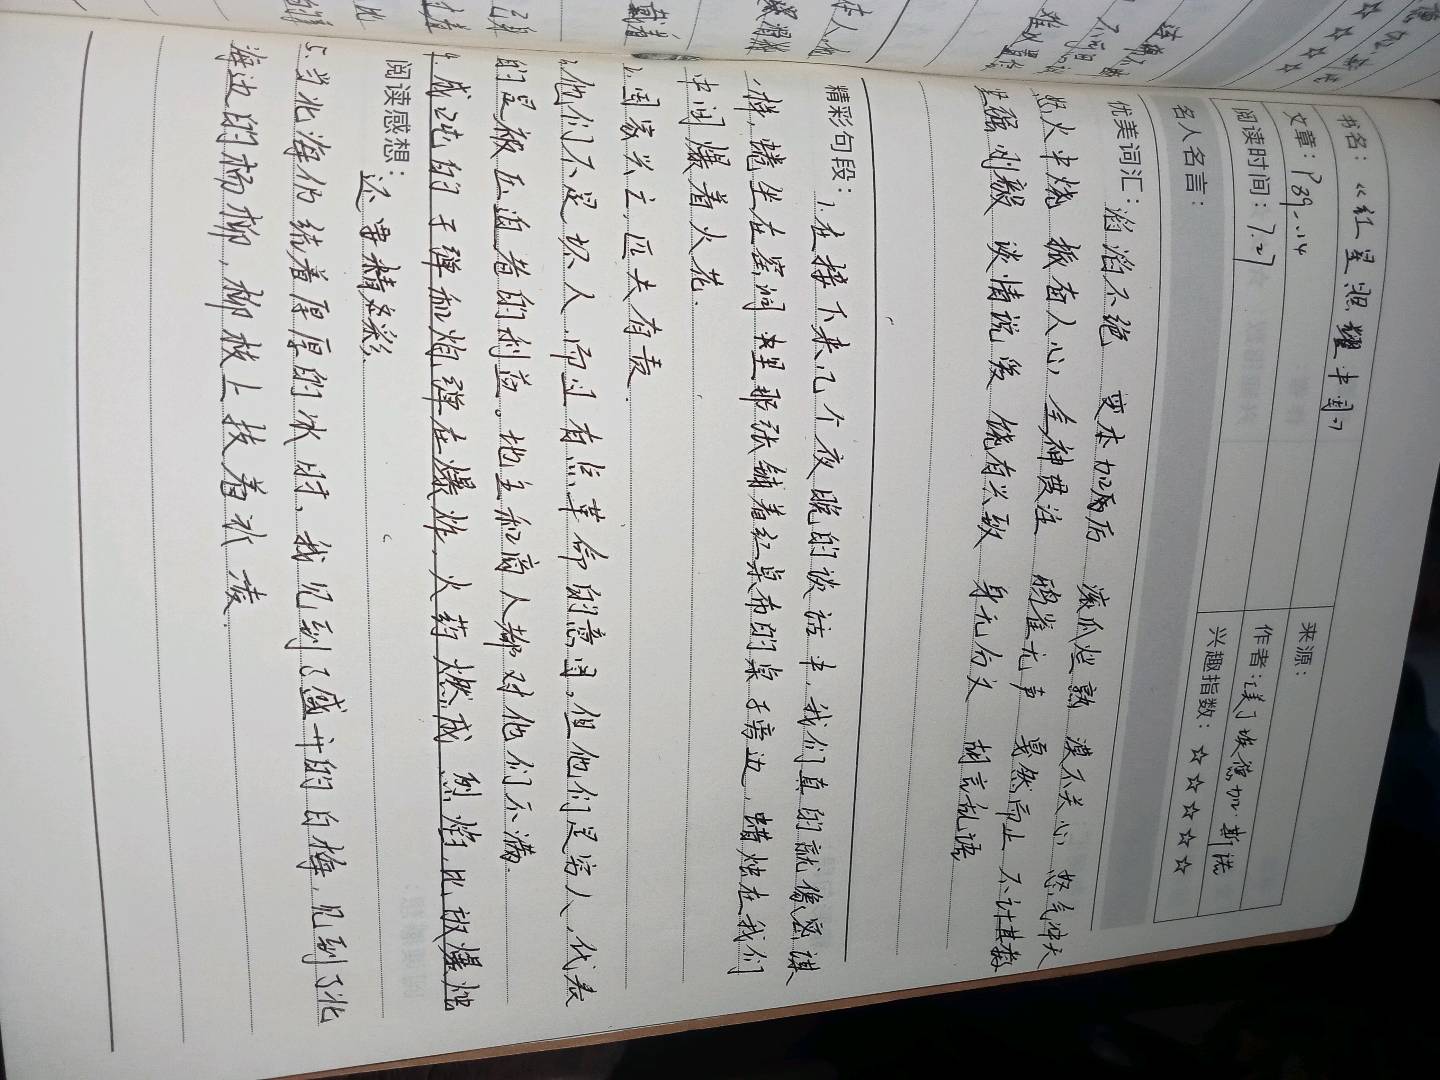 书名：《红星照耀中国》
文章：P89-14
来源：
阅读时间：7.27
作者：[美]埃德加·斯诺
兴趣指数：☆☆☆☆☆
名人名言：
优美词汇：滔滔不绝 变本加厉后 滚瓜烂熟 漠不关心 怒气冲天
怒火中烧 振奋人心 全神贯注 鸦雀无声 戛然而止 不计其数
坚强刚毅 谈情说爱 饶有兴致 身无分文 胡言乱语
精彩句段：1.在接下来几个夜晚的谈话中，我们真的就像密谋
一样，蜷坐在窑洞里那张铺着红桌布的桌子旁边，蜡烛在我们
中间爆着火花．
2.国家兴亡，匹夫有责．
3.他们不是坏人，而且有点革命的意图，但他们是穷人，代表
的是被压迫者的利益。地主和商人都对他们不满．
4.成吨的子弹和炮弹在爆炸，火药燃成烈焰，比放爆烛
阅读感想：还要精彩．
5.当北海仍结着厚厚的冰时、我见到了盛开的白梅，见到了北
海边的杨柳，柳枝上挂着冰凌．